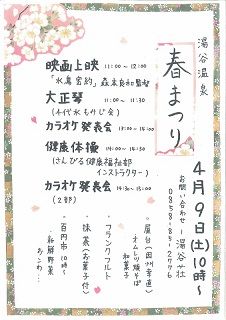 湯谷温泉
春まつり
4月9日(土)10時〜
お問い合わせ 湯谷荘
0858-85-2776
映画上映 11:00〜12:00
大正琴 11:00〜11:30
カラオケ発表会 13:00〜14:00
健康体操 14:00〜14:30
(さんびる健康福祉部
インストラクター)
カラオケ発表会 14:30〜15:00
(2部)
・屋台
オムレツ焼そば
和菓子
・フランクフルト
・抹茶(お菓子付)
・百円市 10時〜
・和鮮野菜